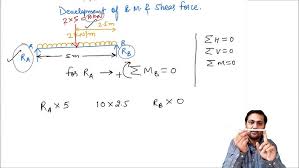 Development of B.M. & Shear force.
2×5=10kN
2.5m
2kN/m
R_A
R_B
5m
for R_A → + ΣM_B = 0
ΣH=0
ΣV=0
ΣM=0
R_A × 5 10×2.5 R_B × 0